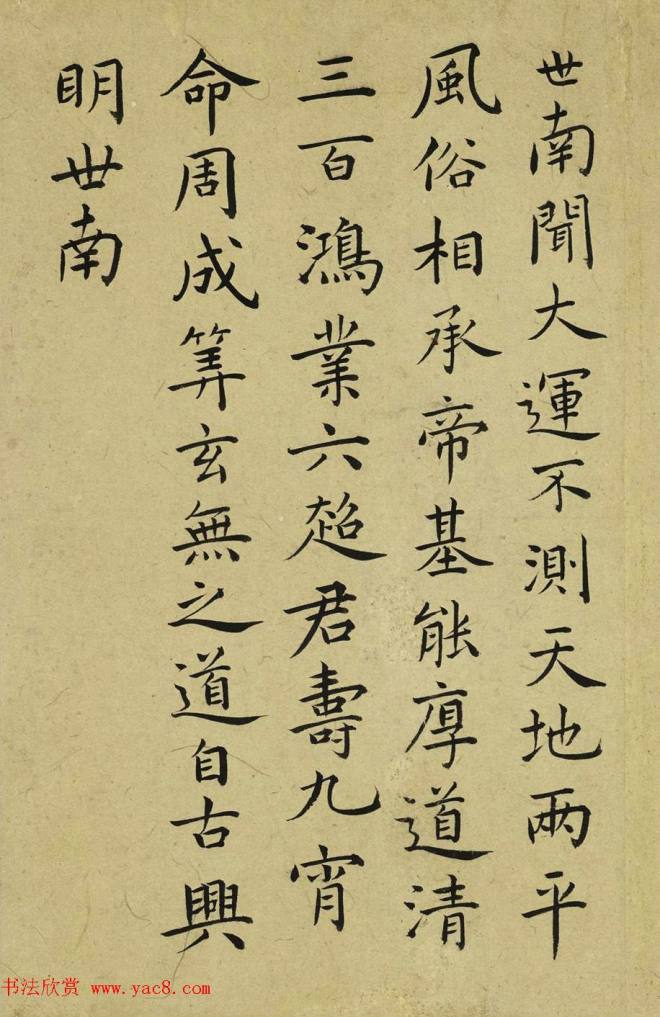 世南聞大運不測天地兩平
風俗相承帝基能厚道清
三百鴻業六超君壽九宵
命周成筭玄無之道自古興
明世南
书法欣赏 www.yac8.com